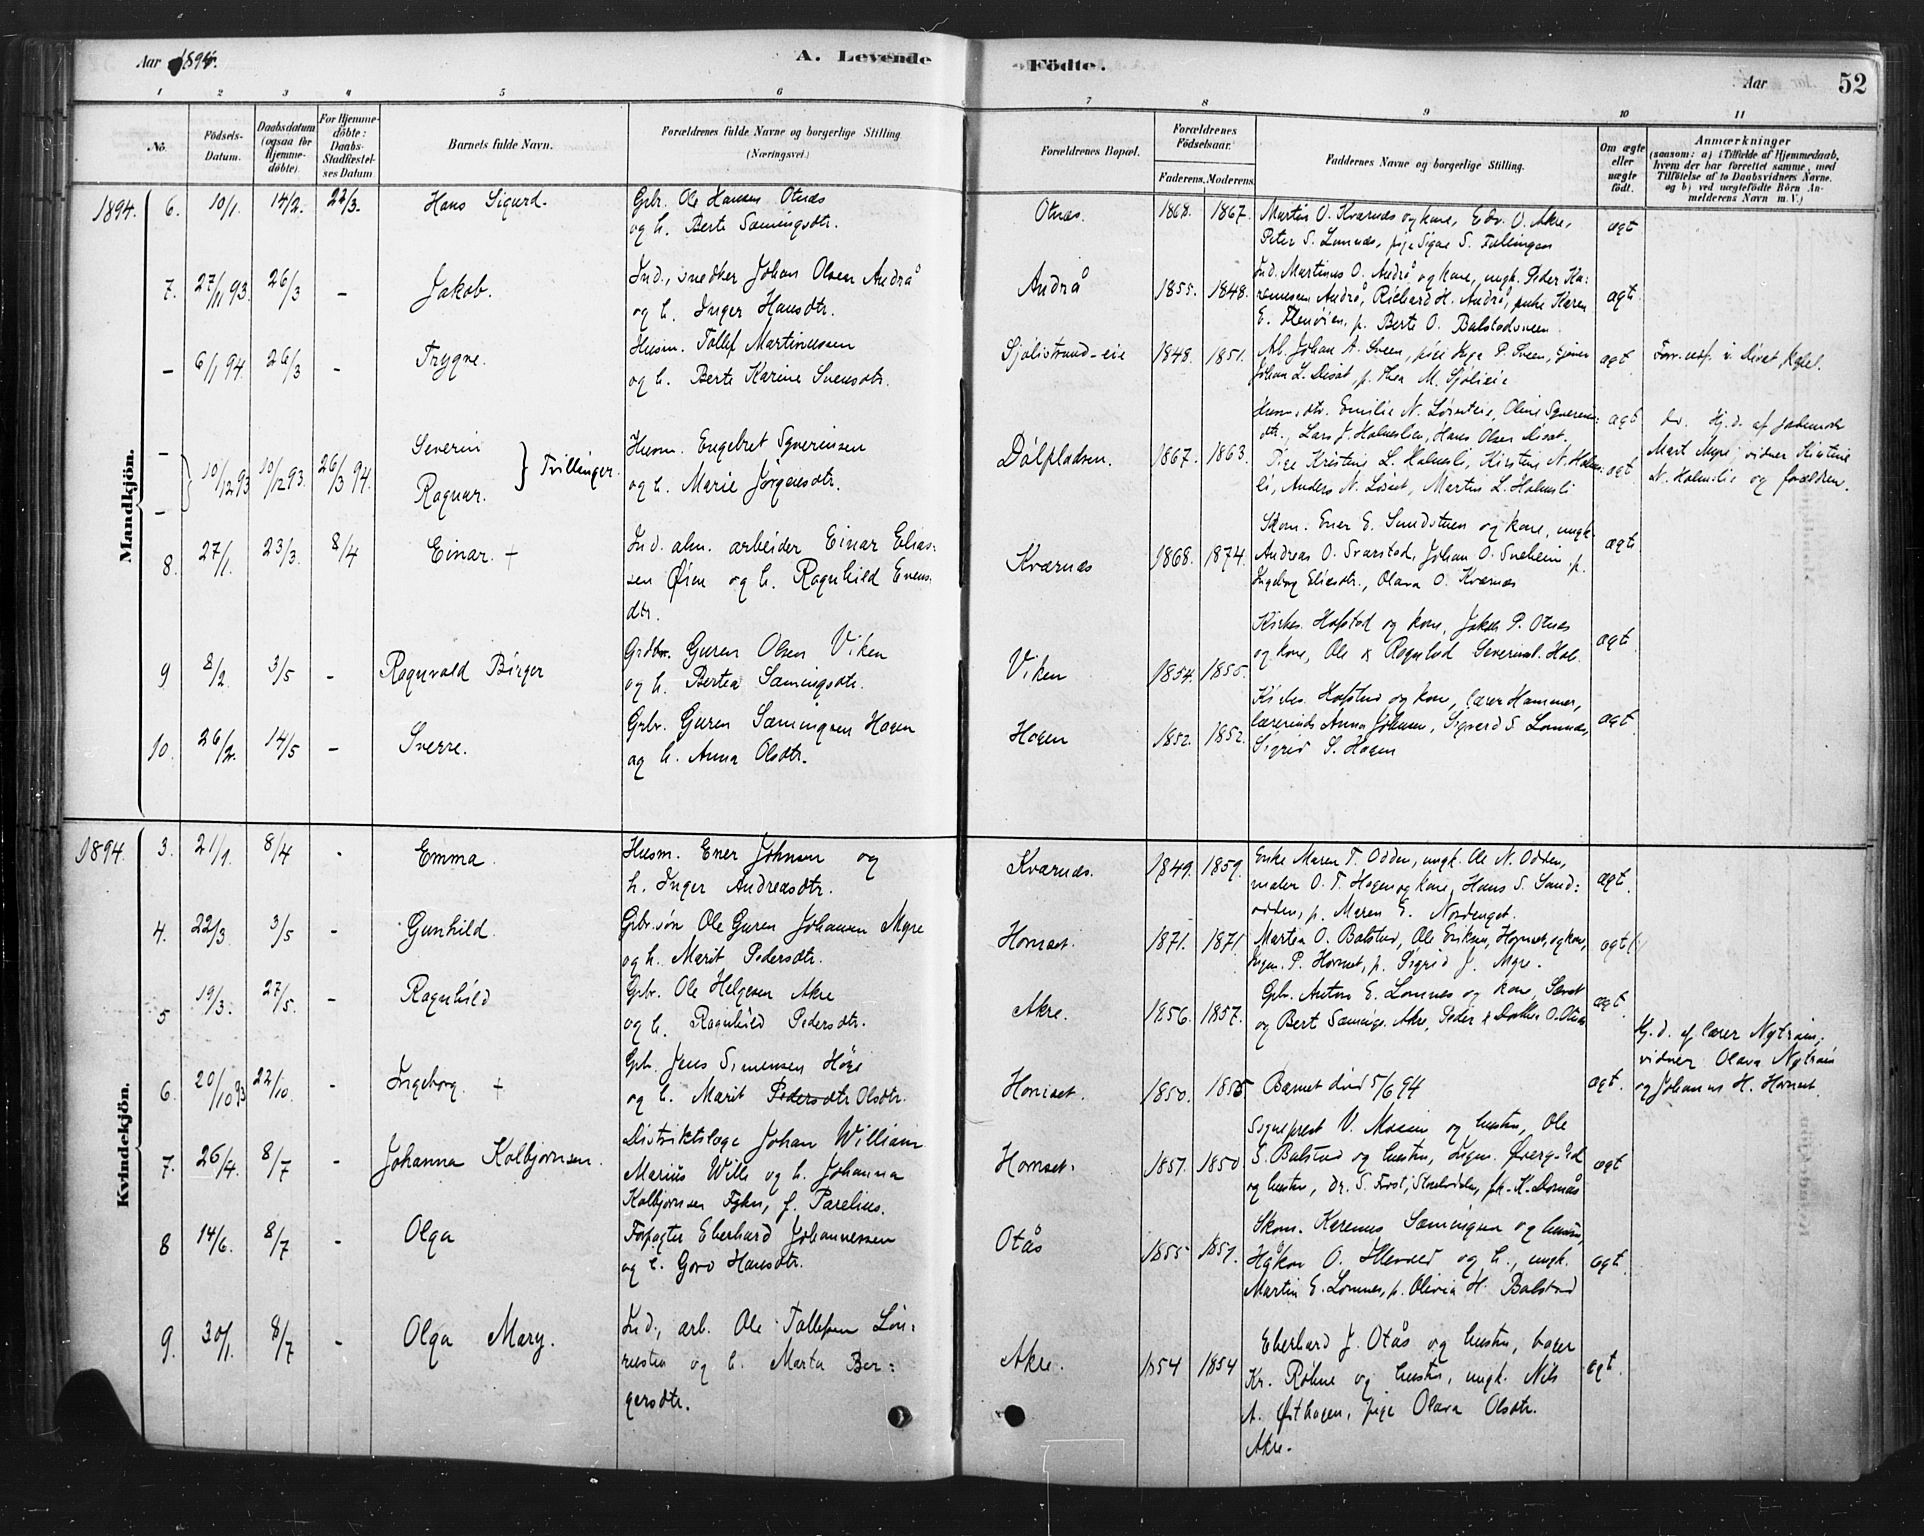 Aar 1894.
A. Levende
Födte.
Aar
52
1 2 3 4 5 6 7 8 9 10 11
No.
Födsels-Datum.
Daabsdatum (ogsaa for Hjemmedöbte).
For Hjemmedöbte: Daabs-Stadfæstelses Datum.
Barnets fulde Navn.
Forældrenes fulde Navne og borgerlige Stilling (Næringsvei.)
Forældrenes Bopæl.
Forældrenes Födselsaar.
Faderens. Moderens.
Faddernes Navne og borgerlige Stilling.
Om ægte eller uægte födt.
Anmærkninger
(saasom: a) i Tilfælde af Hjemmedaab, hvem der har forrettet samme, med Tilföielse af to Daabsvidners Navne. og b) ved uægtefödte Börn Anmelderens Navn m. V.)
Mandkjön.
1894. 6. 10/1. 14/2. 22/3. Hans Sigurd. Gbr. Ole Hansen Otnæs
og h. Berte Sæmingsdtr. Otnæs. 1868. 1867. Martin O. Kværnæs og kone, Edv. O. Akre,
Peter S. Lomnæs, pige Signe S. Fællingen ægt
7. 27/11 93. 26/3 - Jakob. Ind., snedker Johan Olsen Andrå
og h. Inger Hansdtr. Andrå 1855. 1848. Ind. Martinus O. Andrå og kone, ungk. Peder
Andrå, Richard H. Andrå, enke Karen
E. p. Berte O. Balstadsveen. ægt.
- 6/1 94. 26/3 - Trygve. Husm. Tollef Martinussen
og h. Berte Karine Svensdtr. Sjølistrand-eie 1848. 1851. Johan A. Sveen, P. Sveen,
Johan L. Disæt, p. Thea M. Sjøli ægt.
- 10/12 93 10/12 93. 26/3 94. Severin
- Ragnar. } Tvillinger. Husm. Engebret Syverinsen
og h. Marie Jørgensdtr. Dølpladsen. 1867. 1863. Emilie N. Oline
Lars J. Holmslien, Hans Olsen
Pige Kristine L. Holmsli, Kirstine N. Holms:
li, Anders N. Martin L. Holmsli ægt ægt Hj. d. af jordemoder
Mari Myre; vidner Kirstine
N. Holmslie og forældren.
8. 27/1. 23/3. 8/4 Einar. + Ind. alm. arbeider Einar Elias:
sen Øien og h. Ragnhild Evens:
dtr. Kværnæs 1868. 1874. Skom. Ener E. Sundstuen og kone, ungk.
Andreas O. Svarstad, Johan O. Sneheim, p.
Ingeborg Eliasdtr., Olava O. Kværnæs ægt.
9 8/2. 3/5 - Ragnvald Birger Grdbr. Guren Olsen Viken
og h. Bertea Sæmingsdtr. Viken 1854. 1855. Kirkes. Hofstad og kone, Jakob P. Otnæs
og kone, Ole & Ragnhild Hol. ægt
10. 26/2. 14/5 - Sverre. Gbr. Guren Sæmingsen Hagen
og h. Anna Olsdtr. Hagen 1852. 1852. Kirkes. Hofstad og kone, lærer Hammer,
lærerinde Anna Johnsen, Sigvard S. Lomnæs,
Sigrid S. Hagen ægt.
Kvindekjön.
1894. 3. 21/1. 8/4 - Emma. Husm. Ener Johnsen og
h. Inger Andreasdtr. Kværnæs. 1849. 1859. Enke Maren T. Odden, ungk. Ole N. Odden,
maler O. T. Hagen og kone, Hans S. Sand:
odden, p. Maren E. Nordenget. ægt.
4. 22/3 3/5 - Gunhild. Gbr.søn Ole Guren Johansen Myre
og h. Marit Pedersdtr. Hornset. 1871. 1871 Martin O. Balstad, Ole Eriksen Hornset og kone,
P. Hornset, p. Sigrid J. Myre. ægt
5 19/3. 27/5. - Ragnhild Gbr. Ole Helgesen Akre
og h. Ragnhild Pedersdtr. Akre. 1856. 1857. Gbr. Anton E. Lomnes og kone,
og Bert Sæmings. Akre, Peder & O. Otnæs ægt.
6. 20/10 93 22/10. - Ingeborg. + Gbr. Jens Simensen
og h. Marit Pedersdtr Olsdtr. Hornset. 1850. 1855 Barnet død 5/6 94 ægt. Hj. d. af lærer Nytrøen;
vidner Olava Nytrøen
og Johannes H. Hornset.
7. 26/4. 8/7 - Johanna Kolbjørnsen. Distriktslæge Johan William
Marius Wille og h. Johanna
Kolbjørnsen f. Parelius. Hornset. 1857. 1850 Sogneprest V. og hustru, Ole
S. Balstad og hustru,
og hustru, dr. S. ægt
8 14/6. 8/7 - Olga Forpagter Eberhard Johannessen
og h. Goro Hansdtr. Otås 1855 1857. Skom. Karenus Sæmingsen og hustru,
Håkon O. og h., ungk.
Martin E. Lomnes, p. Olivia H. Balstad ægt.
9. 30/1. 8/7 - Olga Mary. Ind., arb. Ole Tollefsen
og h. Marta Ber:
gersdtr. Akre. 1854 1854 Eberhard J. Otås og hustru, bager
Kr. Røhne og hustru, ungk. Nils
A. Østhagen, pige Olava Olsdtr.
Akre. ægt.